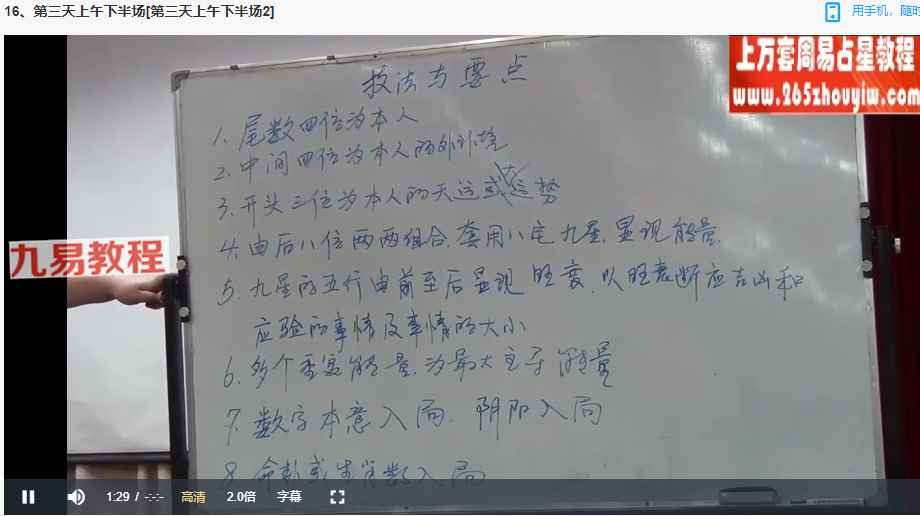 16、第三天上午下半场[第三天上午下半场2]
用手机，随时
上万套周易占星教程
www.265zhouyiw.com
九易教程
技法与要点
1. 尾数四位为本人
2. 中间四位为本人的外环境
3. 开头三位为本人的天运或运势
4. 由后八位两两组合.套用八宅九星.显现能量.
5. 九星的五行由前至后显现 旺衰.以旺衰断应吉凶和
应验的事情及事情的大小
6. 多个重复能量.为最大主导能量
7. 数字本意入局.阴阳入局
8. 命卦或生肖数入局
1:29 / -:-:-
高清
2.0倍
字幕